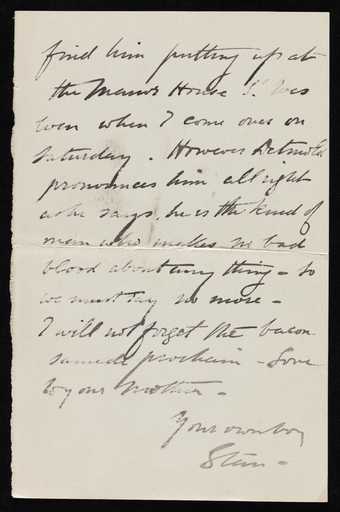 find him putting up at
the Manor House St Ives
even when I come over on
Saturday. However Detmold
pronounces him all right
as he says, he is the kind of
man who makes no bad
blood about any thing - so
we must say no more -
I will not forget the bacon
samedi prochain - Love
to your mother -
Your own boy